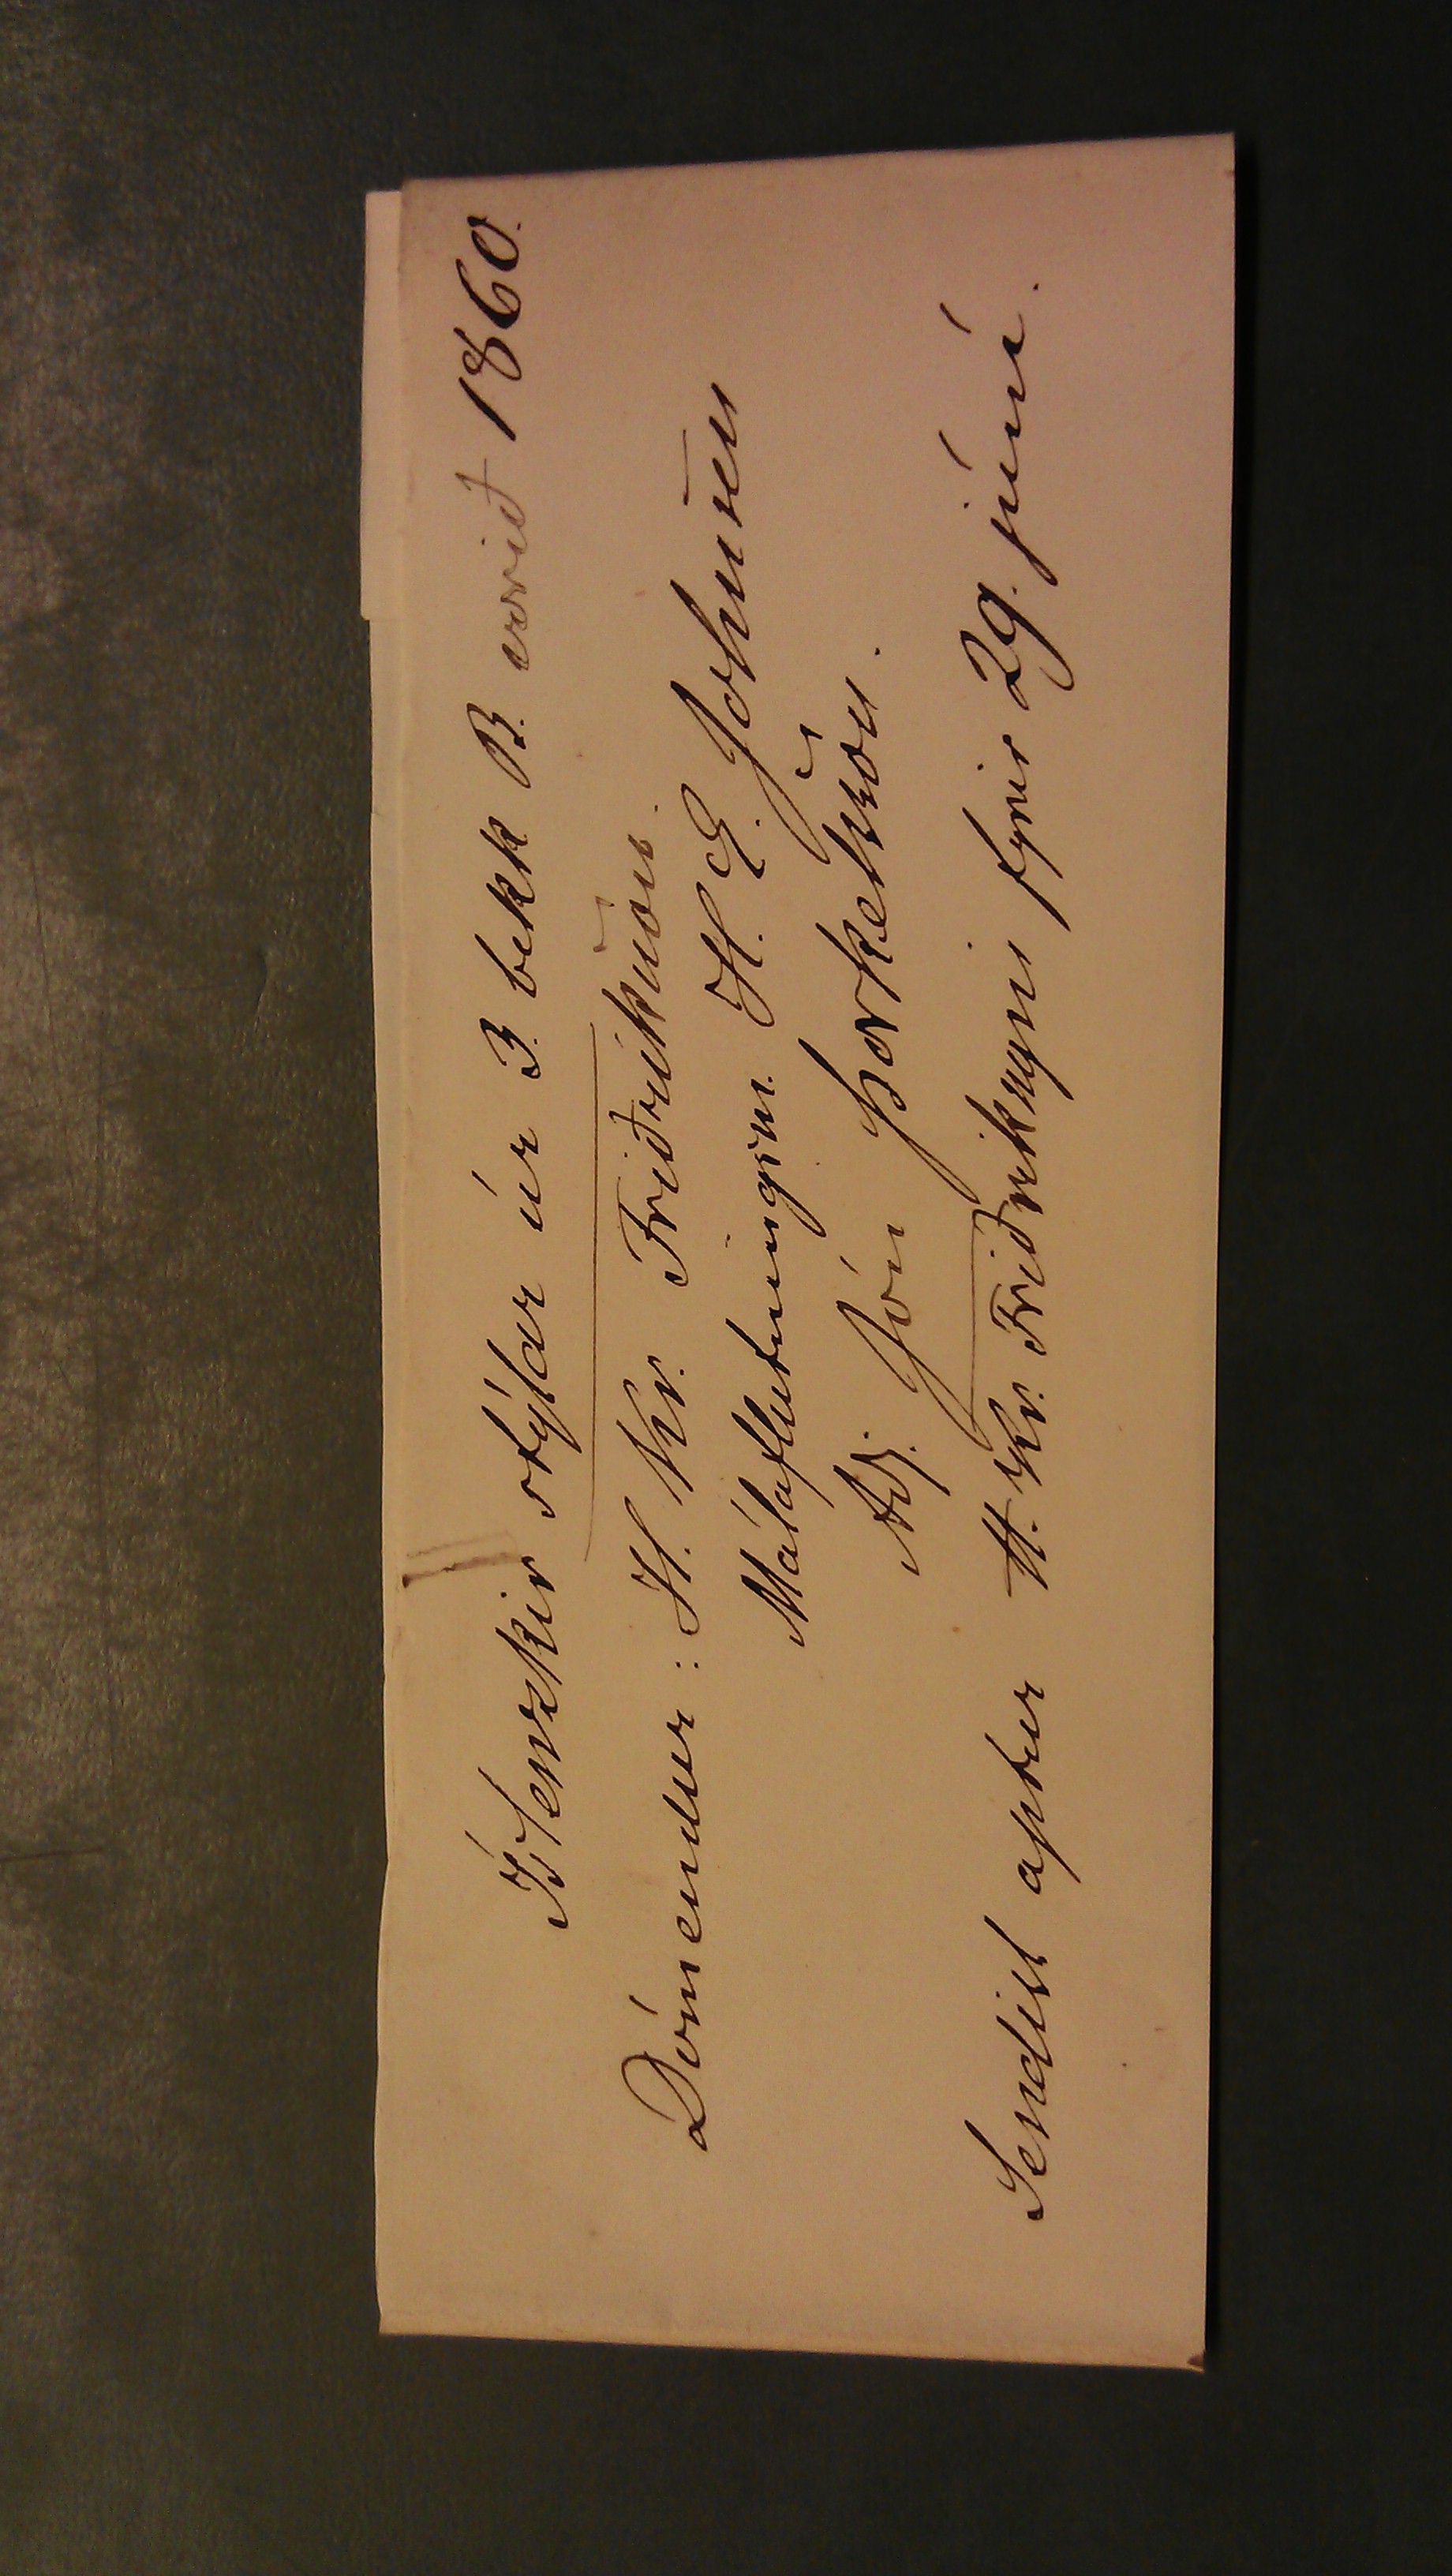 Íslenzkir stýlar úr 3. bekk B. vorið 1860.
Dómendur: H. Kr. Friðriksson.
Málaflutningsm. H. E. Johnsson
Adj. Jón Þorkelsson.
Sendist aptur H. Kr. Friðrikssyni fyrir 29. júní.